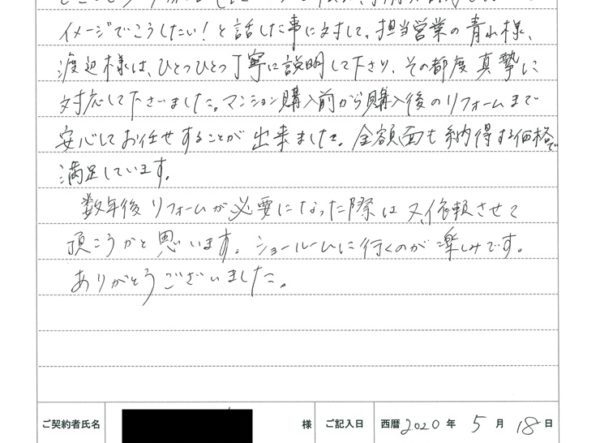 イメージでこうしたい!と話した事に対して、担当営業の青山様、
渡辺様は、ひとつひとつ丁寧に説明して下さり、その都度真摯に
対応して下さいました。マンション購入前から購入後のリフォームまで
安心してお任せすることが出来ました。金額面も納得する価格で
満足しています。
数年後リフォームが必要になった際は又依頼させて
頂こうかと思います。ショールームに行くのが楽しみです。
ありがとうございました。
ご契約者氏名 様 ご記入日 西暦 2020 年 5 月 18 日